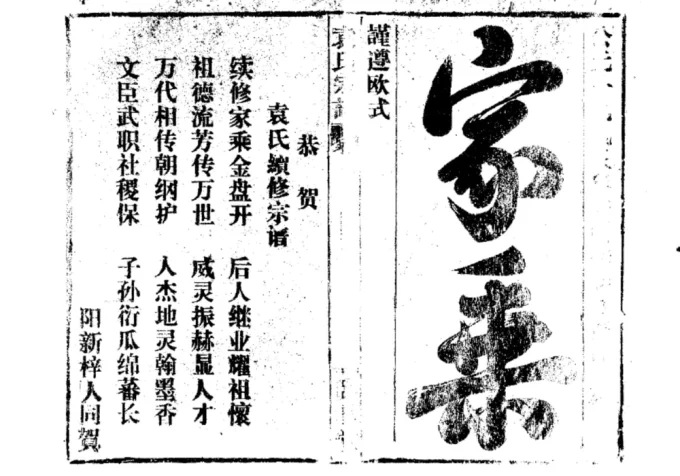 家乗
謹遵欧式
袁氏宗譜
恭贺
袁氏續修宗谱
续修家乘金盘开 后人继业耀祖懷
祖德流芳传万世 威灵振赫显人才
万代相传朝纲护 人杰地灵翰墨香
文臣武职社稷保 子孙衍瓜绵蕃长
阳新梓人同賀